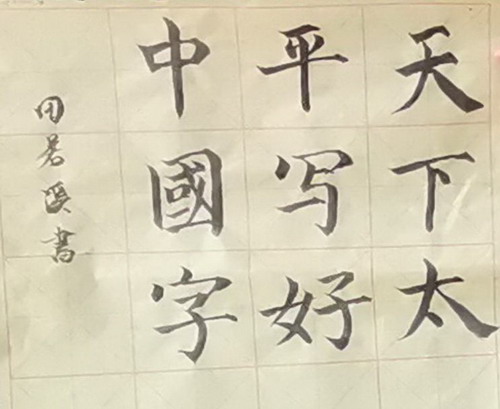 天下太
平写好
中國字
田若溪書